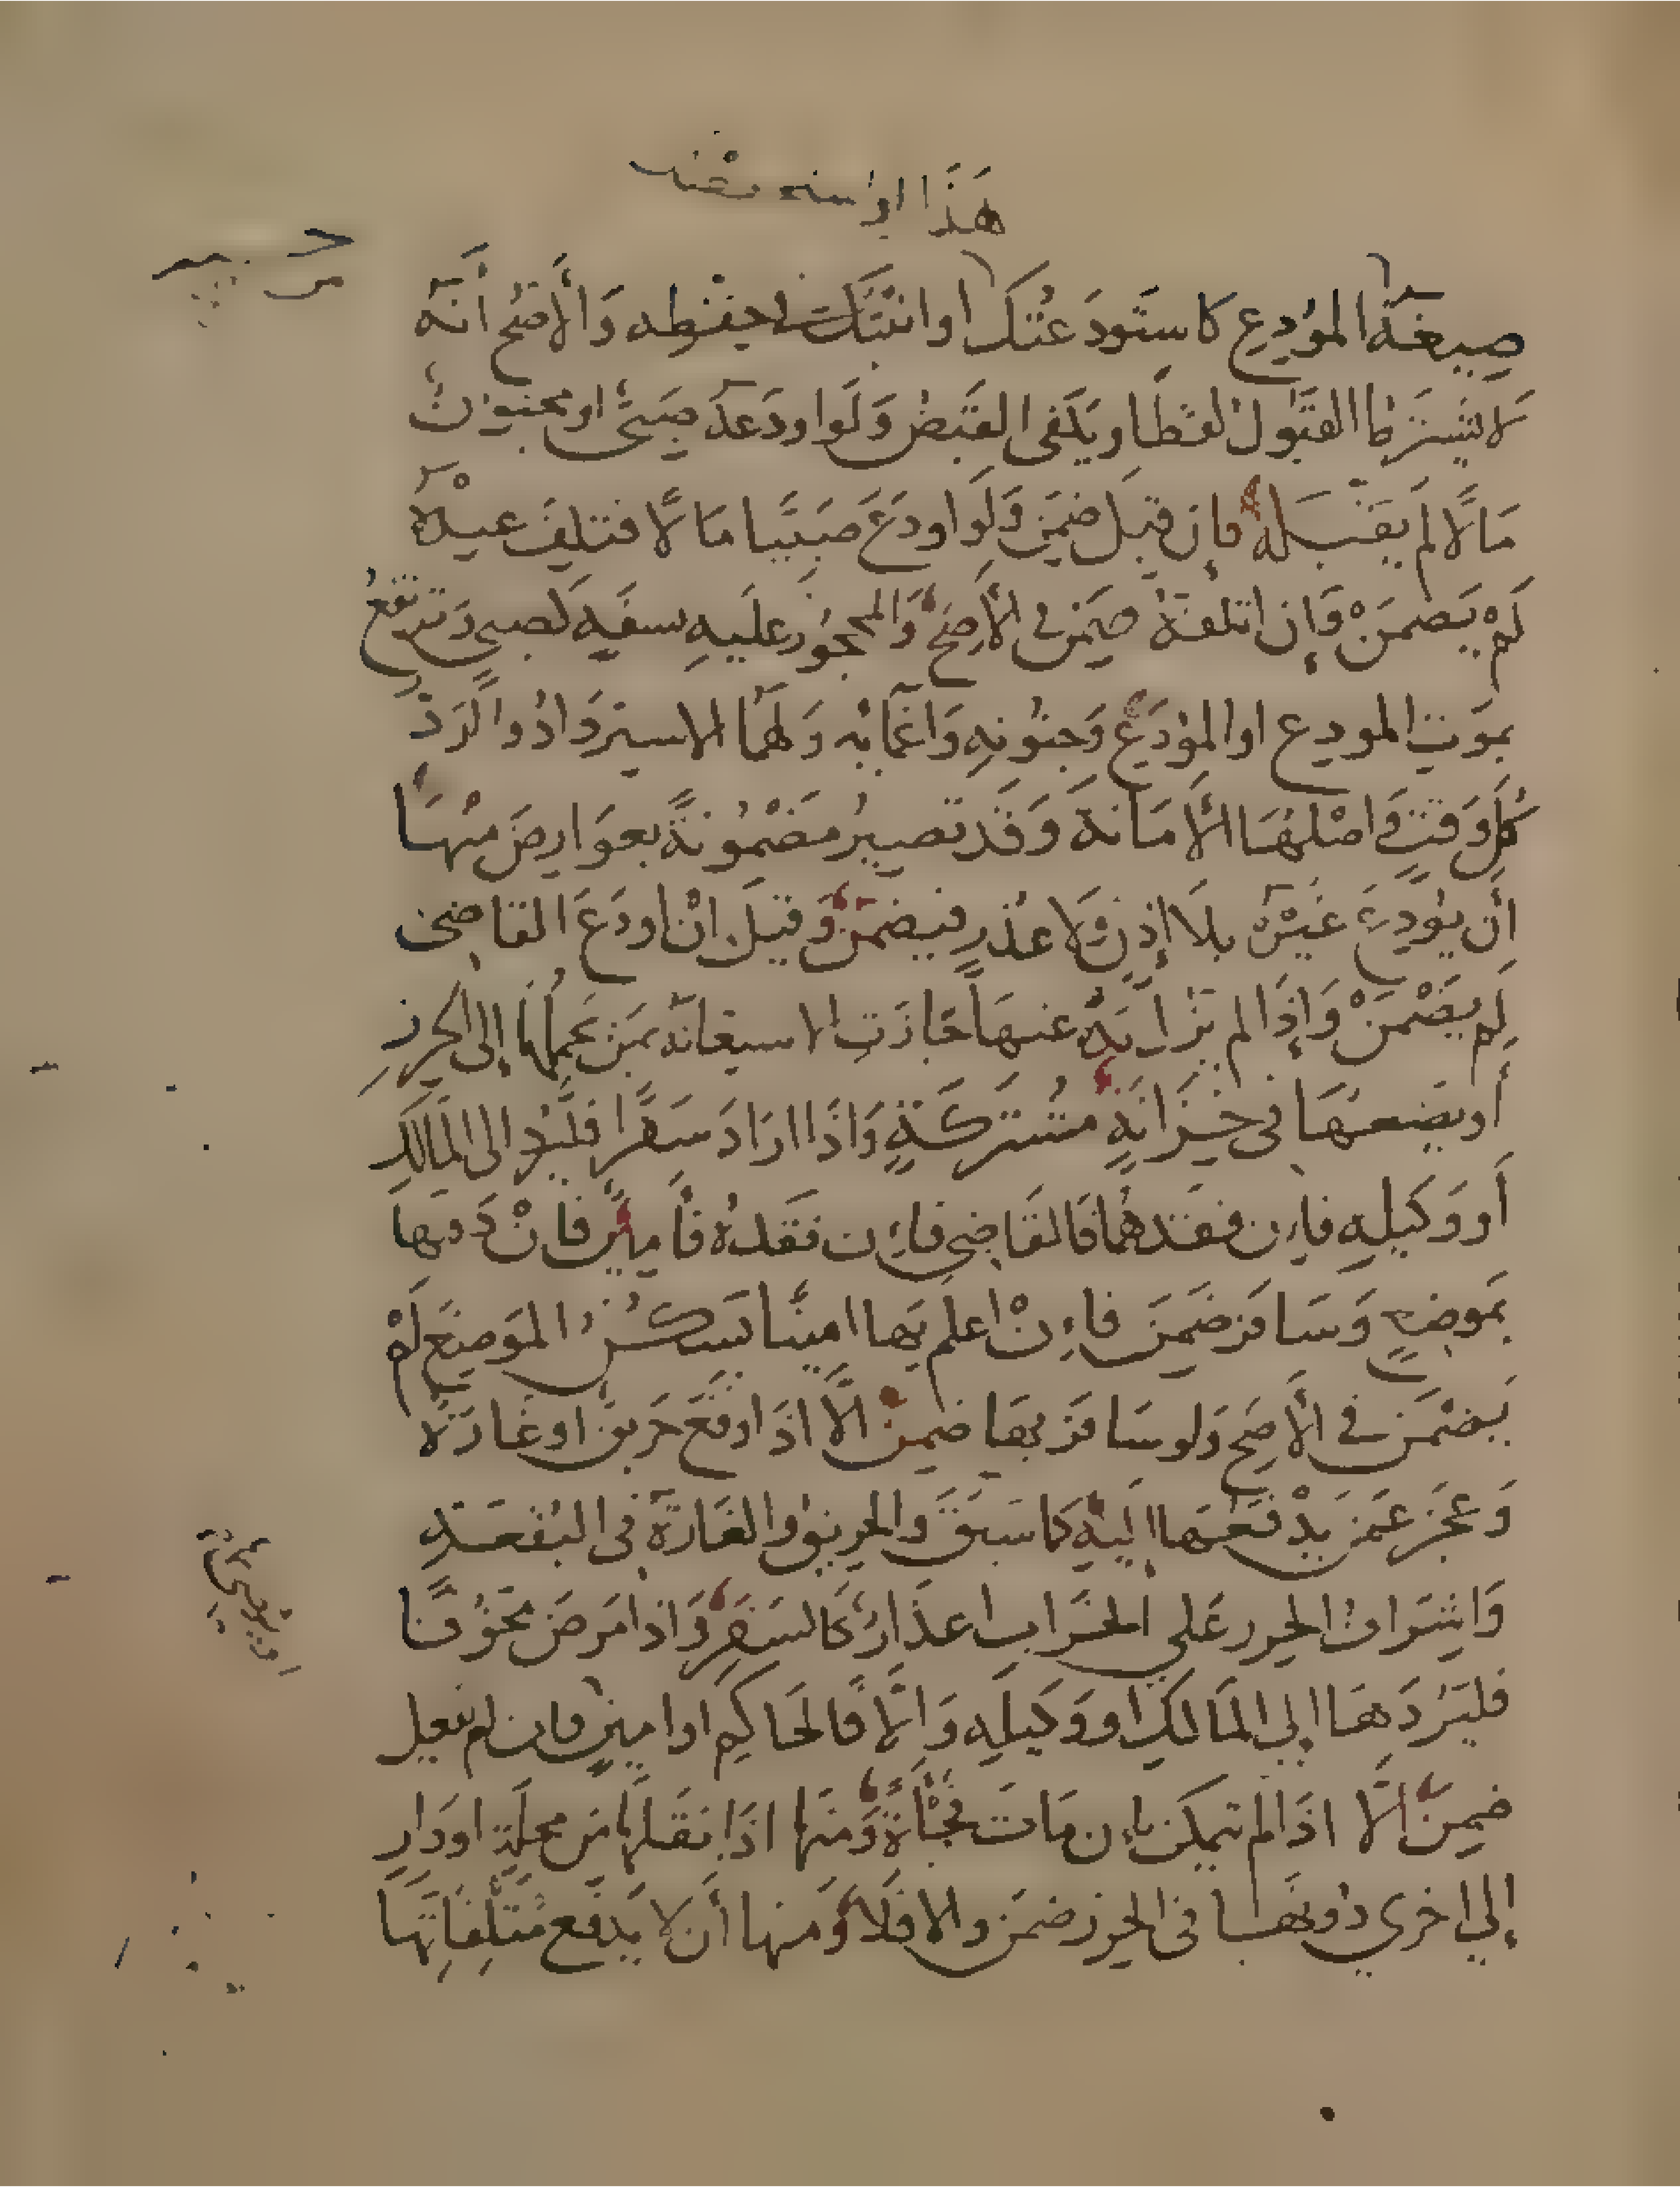 صِيغَةُ المُودِعِ كاستَودَعْتُكَ او انَبتُكَ في حِفْظِه وَالأصَح أنَّهُ
لَا يُشترَط القَبُولُ لفظًا ويَكفي القَبضُ وَلَو اودَعَهُ صَبيٌّ او مجنُونٌ
مَالًا لم يَقْبَلهُ فإن قبِلَ ضمِنَ وَلَو اودَعَ صَبِيًّا مَالًا فتلِفَ عندَهُ
لَمْ يَضمَنْ وَإن اتلفَهُ ضمِنَ في الأصَحِّ وَالمحجُورُ عليهِ بسفَهٍ كصبيٍّ وَترتفِعُ
بمَوتِ المودِع او المُودَعِ وَجنُونِهِ وَاغمَائِه وَلَهُمَا الاسترْدَادُ والرَدُّ
كُلَّ وَقتٍ وَاصْلُهَا الأمَانَة وَقَد تصيرُ مَضْمُونَةً بعوَارِضَ منْهَا
أن يُودِعَ غيْرَهُ بلَا إذنٍ وَلا عُذرٍ فيضمَنُ وَقيلَ انْ اودَعَ القاضِي
لم يَضْمَنْ وَإذَا لم يُزِل يَدَهُ عنهَا جَازَتِ الاستعانَة بمَن يَحمِلُهَا إلى الحِرزِ
أو يضَعُهَا في خِزَانَةٍ مشتَرَكَةٍ وَاذَا ارَادَ سَفَرًا فليَرُد الى المَالِك
أو وَكيلِهِ فإن فقدَهُمَا فالقَاضِي فإن فقَدَهُ فأمينٌ فانْ دَفَنَها
بمَوضِعٍ وَسَافَرَ ضَمِنَ فإنْ اعلَم بها امينًا يَسكُنُ المَوضِعَ لَمْ
يَضْمَن في الأصَحِ وَلو سَافَرَ بهَا ضمِنَ الَّا اذَا وقَعَ حَرِيقٌ او غَارَةٌ
وَعَجَزَ عَمَّن يَدْفَعُهَا اليْهِ كمَا سَبَقَ وَالحرِيقُ والغَارَةُ في البُقعَةِ
وَاشرَافُ الحرزِ علي الخَرَابِ اعذَارٌ كَالسَفَرِ وَاذا مَرضَ مَخُوفًا
فليَرُدَّهَا إلي المَالِكِ او وَكيلِهِ وَإلَّا فالحَاكِم او امينٍ فان لم يفعل
ضمِنَ الَّا اذَا لم يتمكن بإن مَاتَ فُجْأَةً وَمنهَا اذَا نقَلهَا مَن محلةٍ او دَارٍ
إلي اخري دُونهَا في الحرز ضمَن والا فلَا وَمنها أن لا يَدفَع مُتلِفَاتِهَا